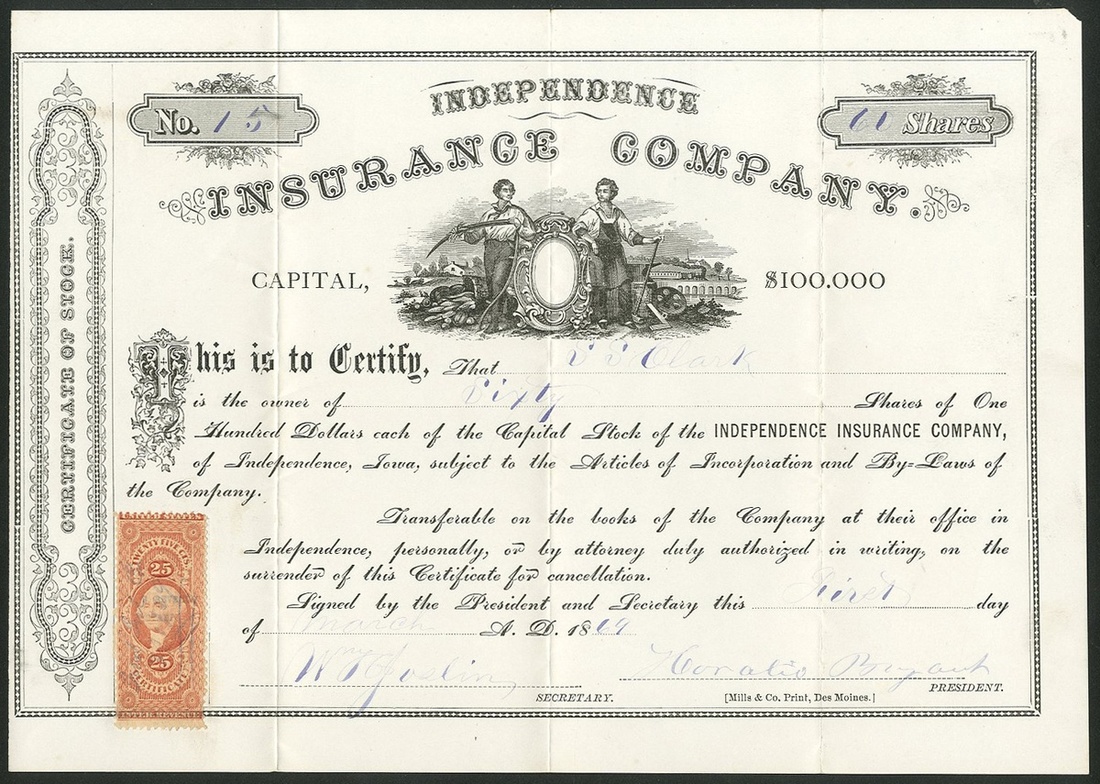 INDEPENDENCE
No. 15
60 Shares
INSURANCE COMPANY.
CAPITAL, $100.000
CERTIFICATE OF STOCK.
This is to Certify, That S S Clark
is the owner of Sixty Shares of One
Hundred Dollars each of the Capital Stock of the INDEPENDENCE INSURANCE COMPANY,
of Independence, Iowa, subject to the Articles of Incorporation and By=Laws of
the Company.
Transferable on the books of the Company at their office in
Independence, personally, or by attorney duly authorized in writing, on the
surrender of this Certificate for cancellation.
Signed by the President and Secretary this First day
of March A. D. 1869
Wm H Joslin Horatio Bryant
SECRETARY. PRESIDENT.
[Mills & Co. Print, Des Moines.]
TWENTY FIVE CTS.
25
25
CERTIFICATE
INTER. REVENUE